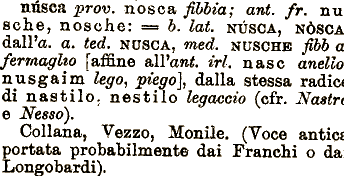 núsca prov. nosca fibbia; ant. fr. nu
sche, nosche: = b. lat. NÚSCA, NÒSCA
dall'a. a. ted. NUSCA, med. NUSCHE fibb a
fermaglio [affine all'ant. irl. nasc anello
nusgaim lego, piego], dalla stessa radice
di nastilo, nestilo legaccio (cfr. Nastro
e Nesso).
Collana, Vezzo, Monile. (Voce antica
portata probabilmente dai Franchi o da
Longobardi).